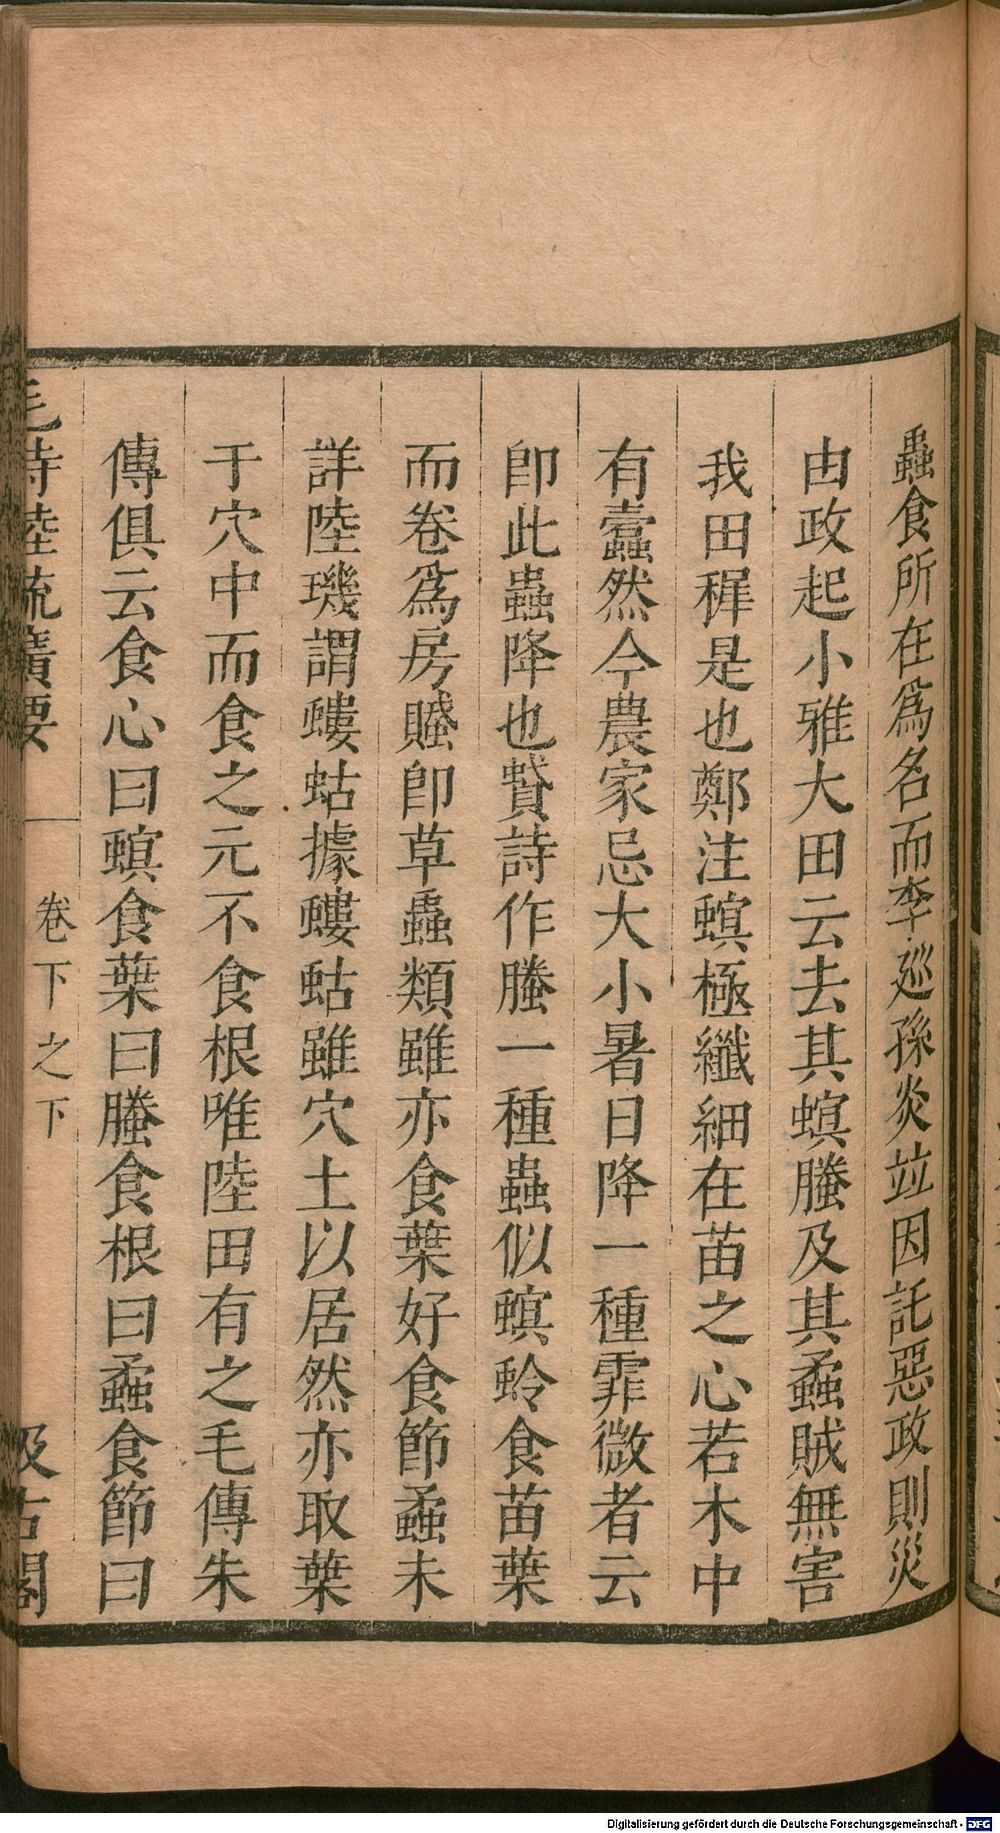 蟲食所在爲名而李巡孫炎竝因託惡政則災
由政起小雅大田云去其螟螣及其蟊賊無害
我田穉是也鄭注螟極纖細在苗之心若木中
有蠹然今農家忌大小暑日降一種霏微者云
卽此蟲降也蟘詩作螣一種蟲似螟蛉食苗葉
而卷爲房賊卽草蟲類雖亦食葉好食節蟊未
詳陸璣謂螻蛄據螻蛄雖穴土以居然亦取葉
于穴中而食之元不食根唯陸田有之毛傳朱
傳俱云食心曰螟食葉曰螣食根曰蟊食節曰
毛詩陸疏廣要 卷下之下 汲古閣
Digitalisierung gefördert durch die Deutsche Forschungsgemeinschaft - DFG